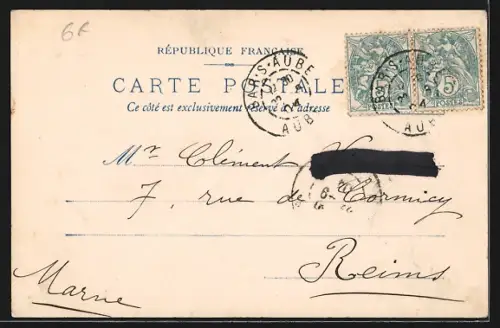 6f
RÉPUBLIQUE FRANÇAISE
CARTE POSTALE
Ce côté est exclusivement réservé à l'adresse
BAR-S-AUBE
AUBE
5c
POSTES
Mr Clément
7, rue de Cormicy
Reims
Marne